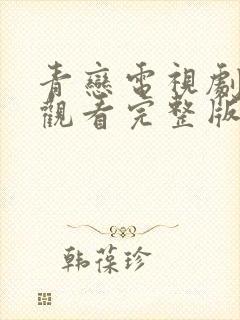 青戀電視劇
觀看完整版
韩葆珍